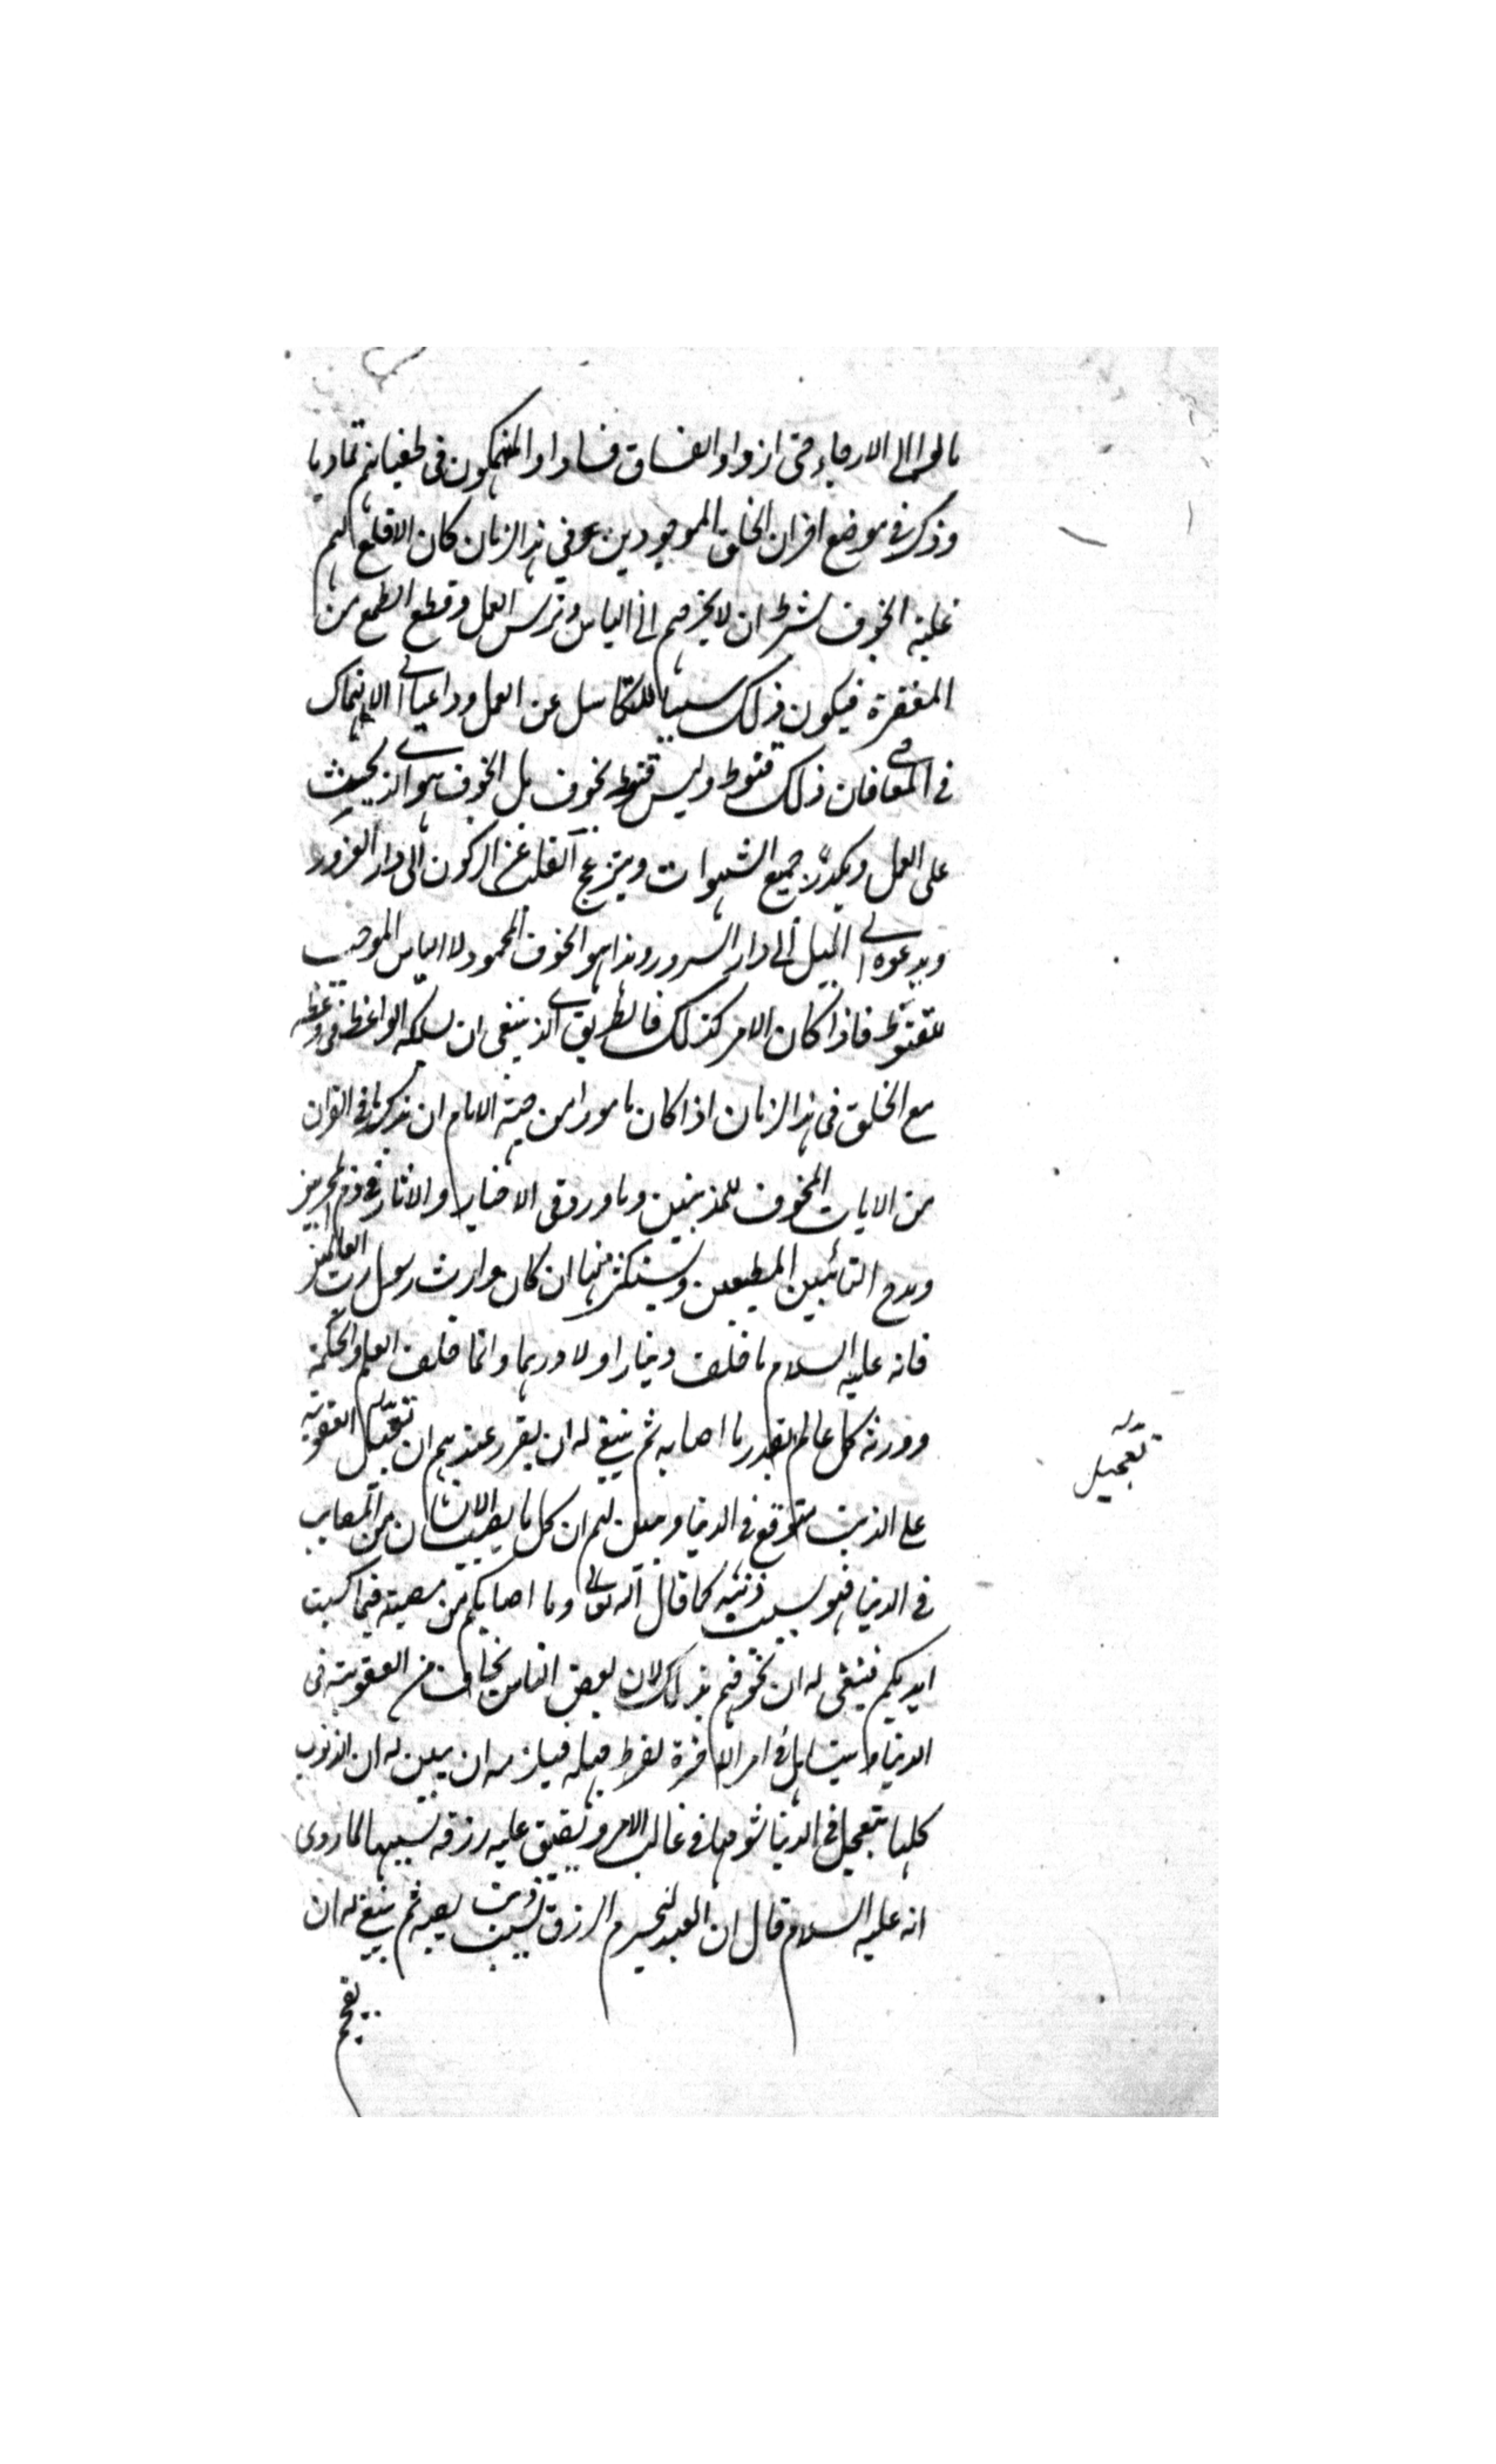 مالوا الى الارجاء حتى ازداد الفساق فسادا والمنهمكون فى طغيانهم تماديا
وذكر فى موضع اخر ان الخلق الموجودين فى هذا الزمان كان الاقلع لهم
غلبة الخوف بشرط ان لا يخرجهم الى الياس وترك العمل وقطع الطمع من
المغفرة فيكون ذلك سببا للتكاسل عن العمل وداعيا الى الانهماك
فى المعاصى فان ذلك قنوط وليس بخوف بل الخوف هو الذى يحث
على العمل ويكدر جميع الشهوات ويزعج القلب عن الركون الى دار الغرور
ويدعوه الى الميل الى دار السرور وهذا هو الخوف المحمود لا الياس الموجب
للقنوط فاذا كان الامر كذلك فالطريق الذى ينبغى ان يسلكه الواعظ فى وعظه
مع الخلق فى هذا الزمان اذا كان مامورا من جهة الامام ان يذكر ما فى القران
من الايات المخوف للمذنبين وما ورد فى الاخبار والاثار فى ذم المجرمين
ومدح التائبين المطيعين ويستكثر منها ان كان وارث رسول رب العالمين
فانه عليه السلام ما خلف دينارا ولا درهما وانما خلف العلم والحكمة
وورثه كل عالم بقدر ما اصابه ثم ينبغى له ان يقرر عندهم ان تعجيل العقوبة
تعجيل
على الذنب متوقع فى الدنيا ويبين لهم ان كل ما يصيب الانسان من المصايب
فى الدنيا فهو بسبب ذنبه كما قال الله تعالى وما اصابكم من مصيبة فبما كسبت
ايديكم فينبغى له ان يخوفهم بذلك لان بعض الناس يخاف من العقوبة فى
الدنيا ويتساهل فى امر الاخرة لفرط جهله فيلزمه ان يبين له ان الذنوب
كلها يتعجل فى الدنيا شومها فى غالب الامر وتضيق عليه رزقه بسببها لما روى
انه عليه السلام قال ان العبد ليحرم الرزق بسبب ذنب يصيبه ثم ينبغى له ان